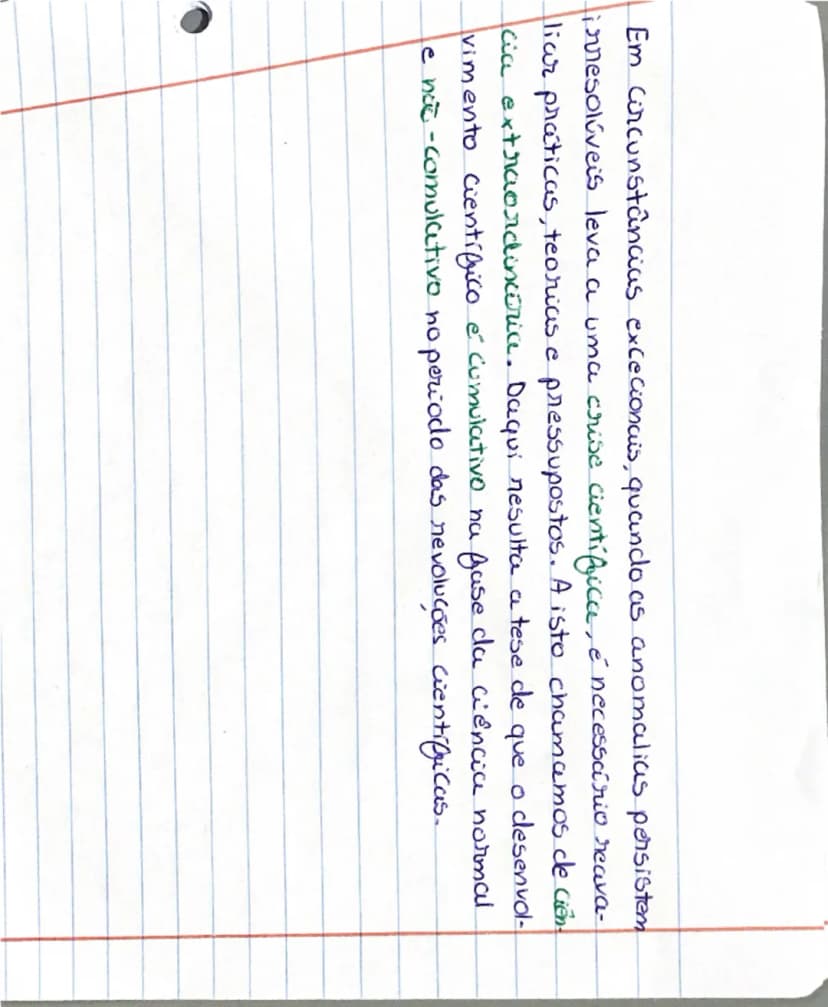 Em circunstâncias excecionais, quando as anomalias persistem
irresolúveis leva a uma crise científica, é necessário reava-
liar práticas, teorias e pressupostos. A isto chamamos de ciên-
cia extraordinária. Daqui resulta a tese de que o desenvol-
vimento científico é cumulativo na fase da ciência normal
e não-comulativo no periodo das revoluções científicas.